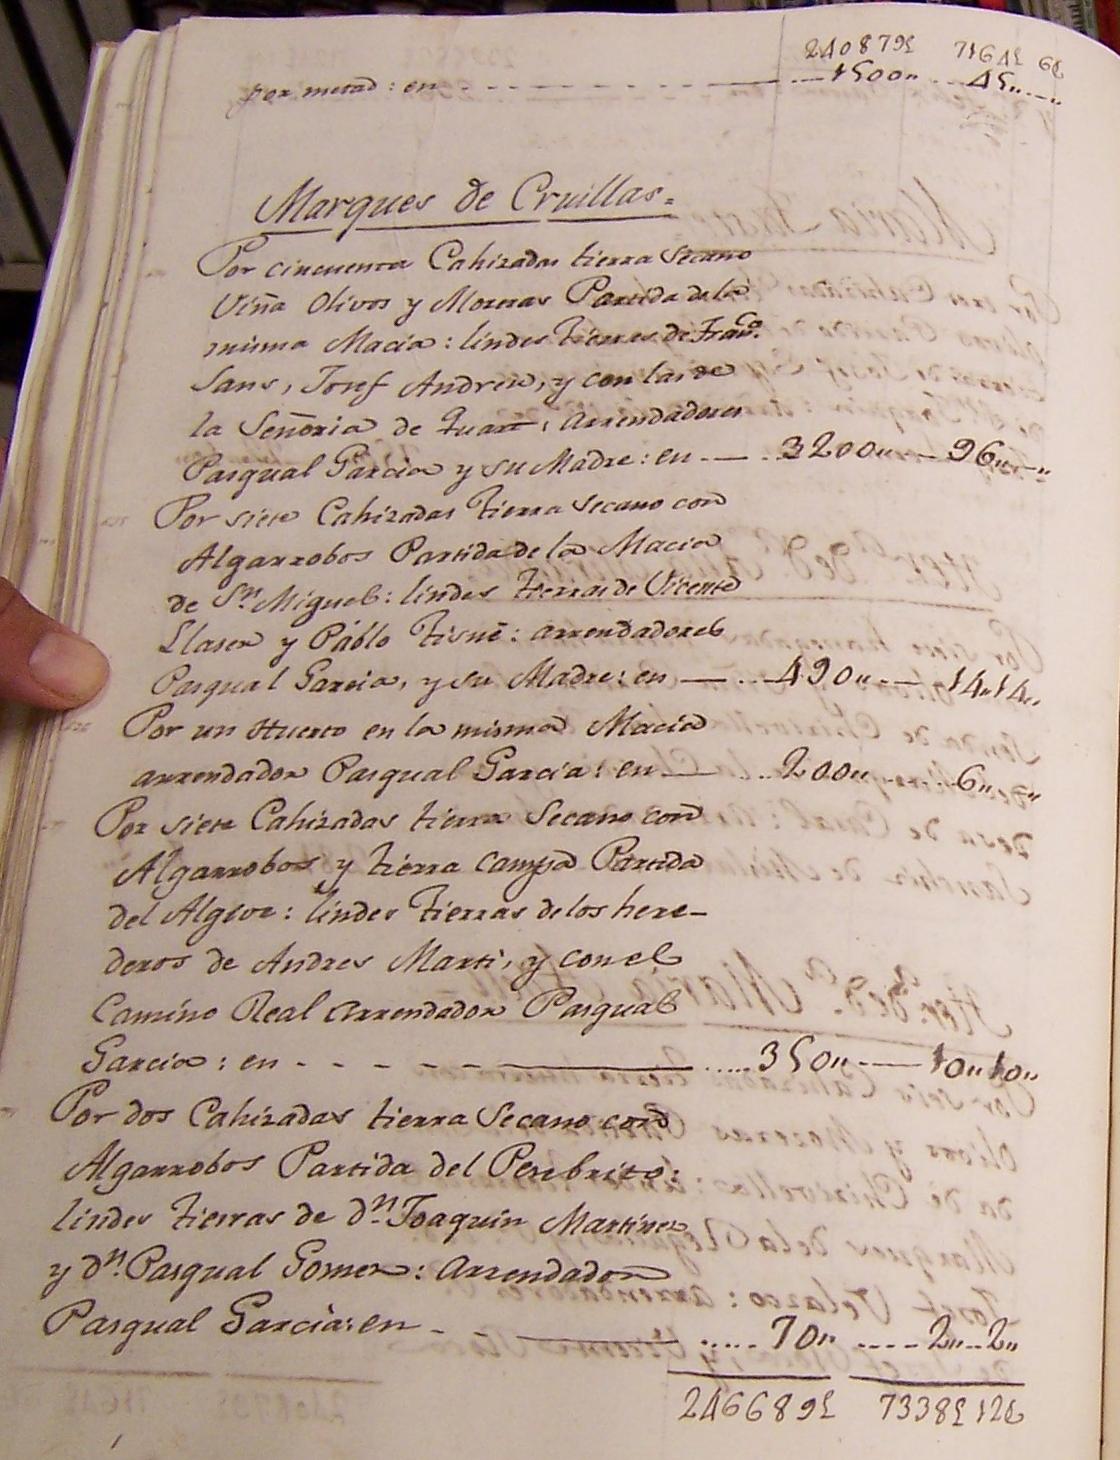 240879£ 7164£ 6S
por metad: en - - - - - - - - 1500,, - - 45,, - - ,,
Marques de Cruillas =
Por cincuenta Cahizadas tierra Secano
Viña Olivos y Moreras Partida de la
misma Macia: lindes tierras de Franco.
Sans, Josef Andreu, y con las de
la Señoria de Quart, arrendadores
Pasqual Garcia y su Madre: en - — 3200,, — 96,, ,,
Por siete Cahizadas tierra Secano con
Algarrobos Partida de la Macia
de Sn. Miguel: lindes tierras de Vicente
Llaser y Pablo Tisné: arrendadores
Pasqual Garcia, y su Madre: en — .. 490,, - — 14,, 14,,
Por un Huerto en la misma Macia
arrendador Pasqual Garcia: en — .. 200,, - ... 6,, ,,
Por siete Cahizadas tierra Secano con
Algarrobos y tierra campa Partida
del Algive: lindes tierras de los here-
deros de Andres Marti, y con el
Camino Real arrendador Pasqual
Garcia: en - - - - - — ..... 350,, — 10,, 10,,
Por dos Cahizadas tierra Secano con
Algarrobos Partida del Perebrito:
lindes tierras de Dn. Joaquin Martinez
y Dn. Pasqual Gomez: arrendador
Pasqual Garcia: en - — ..... 70,, .... 2,, .. 2,,
246689£ 7338£ 12S